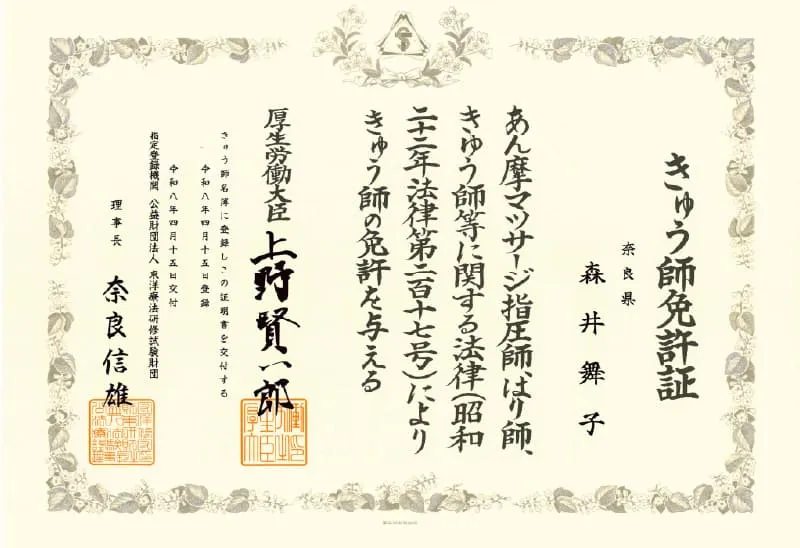 きゅう師免許証
奈良県
森井舞子
あん摩マツサージ指圧師、はり師、
きゆう師等に関する法律(昭和
二十二年法律第二百十七号)により
きゅう師の免許を与える
厚生労働大臣 上野賢一郎
きゅう師名簿に登録しこの証明書を交付する
令和八年四月十五日登録
令和八年四月十五日交付
指定登録機関 公益財団法人 東洋療法研修試験財団
理事長 奈良信雄